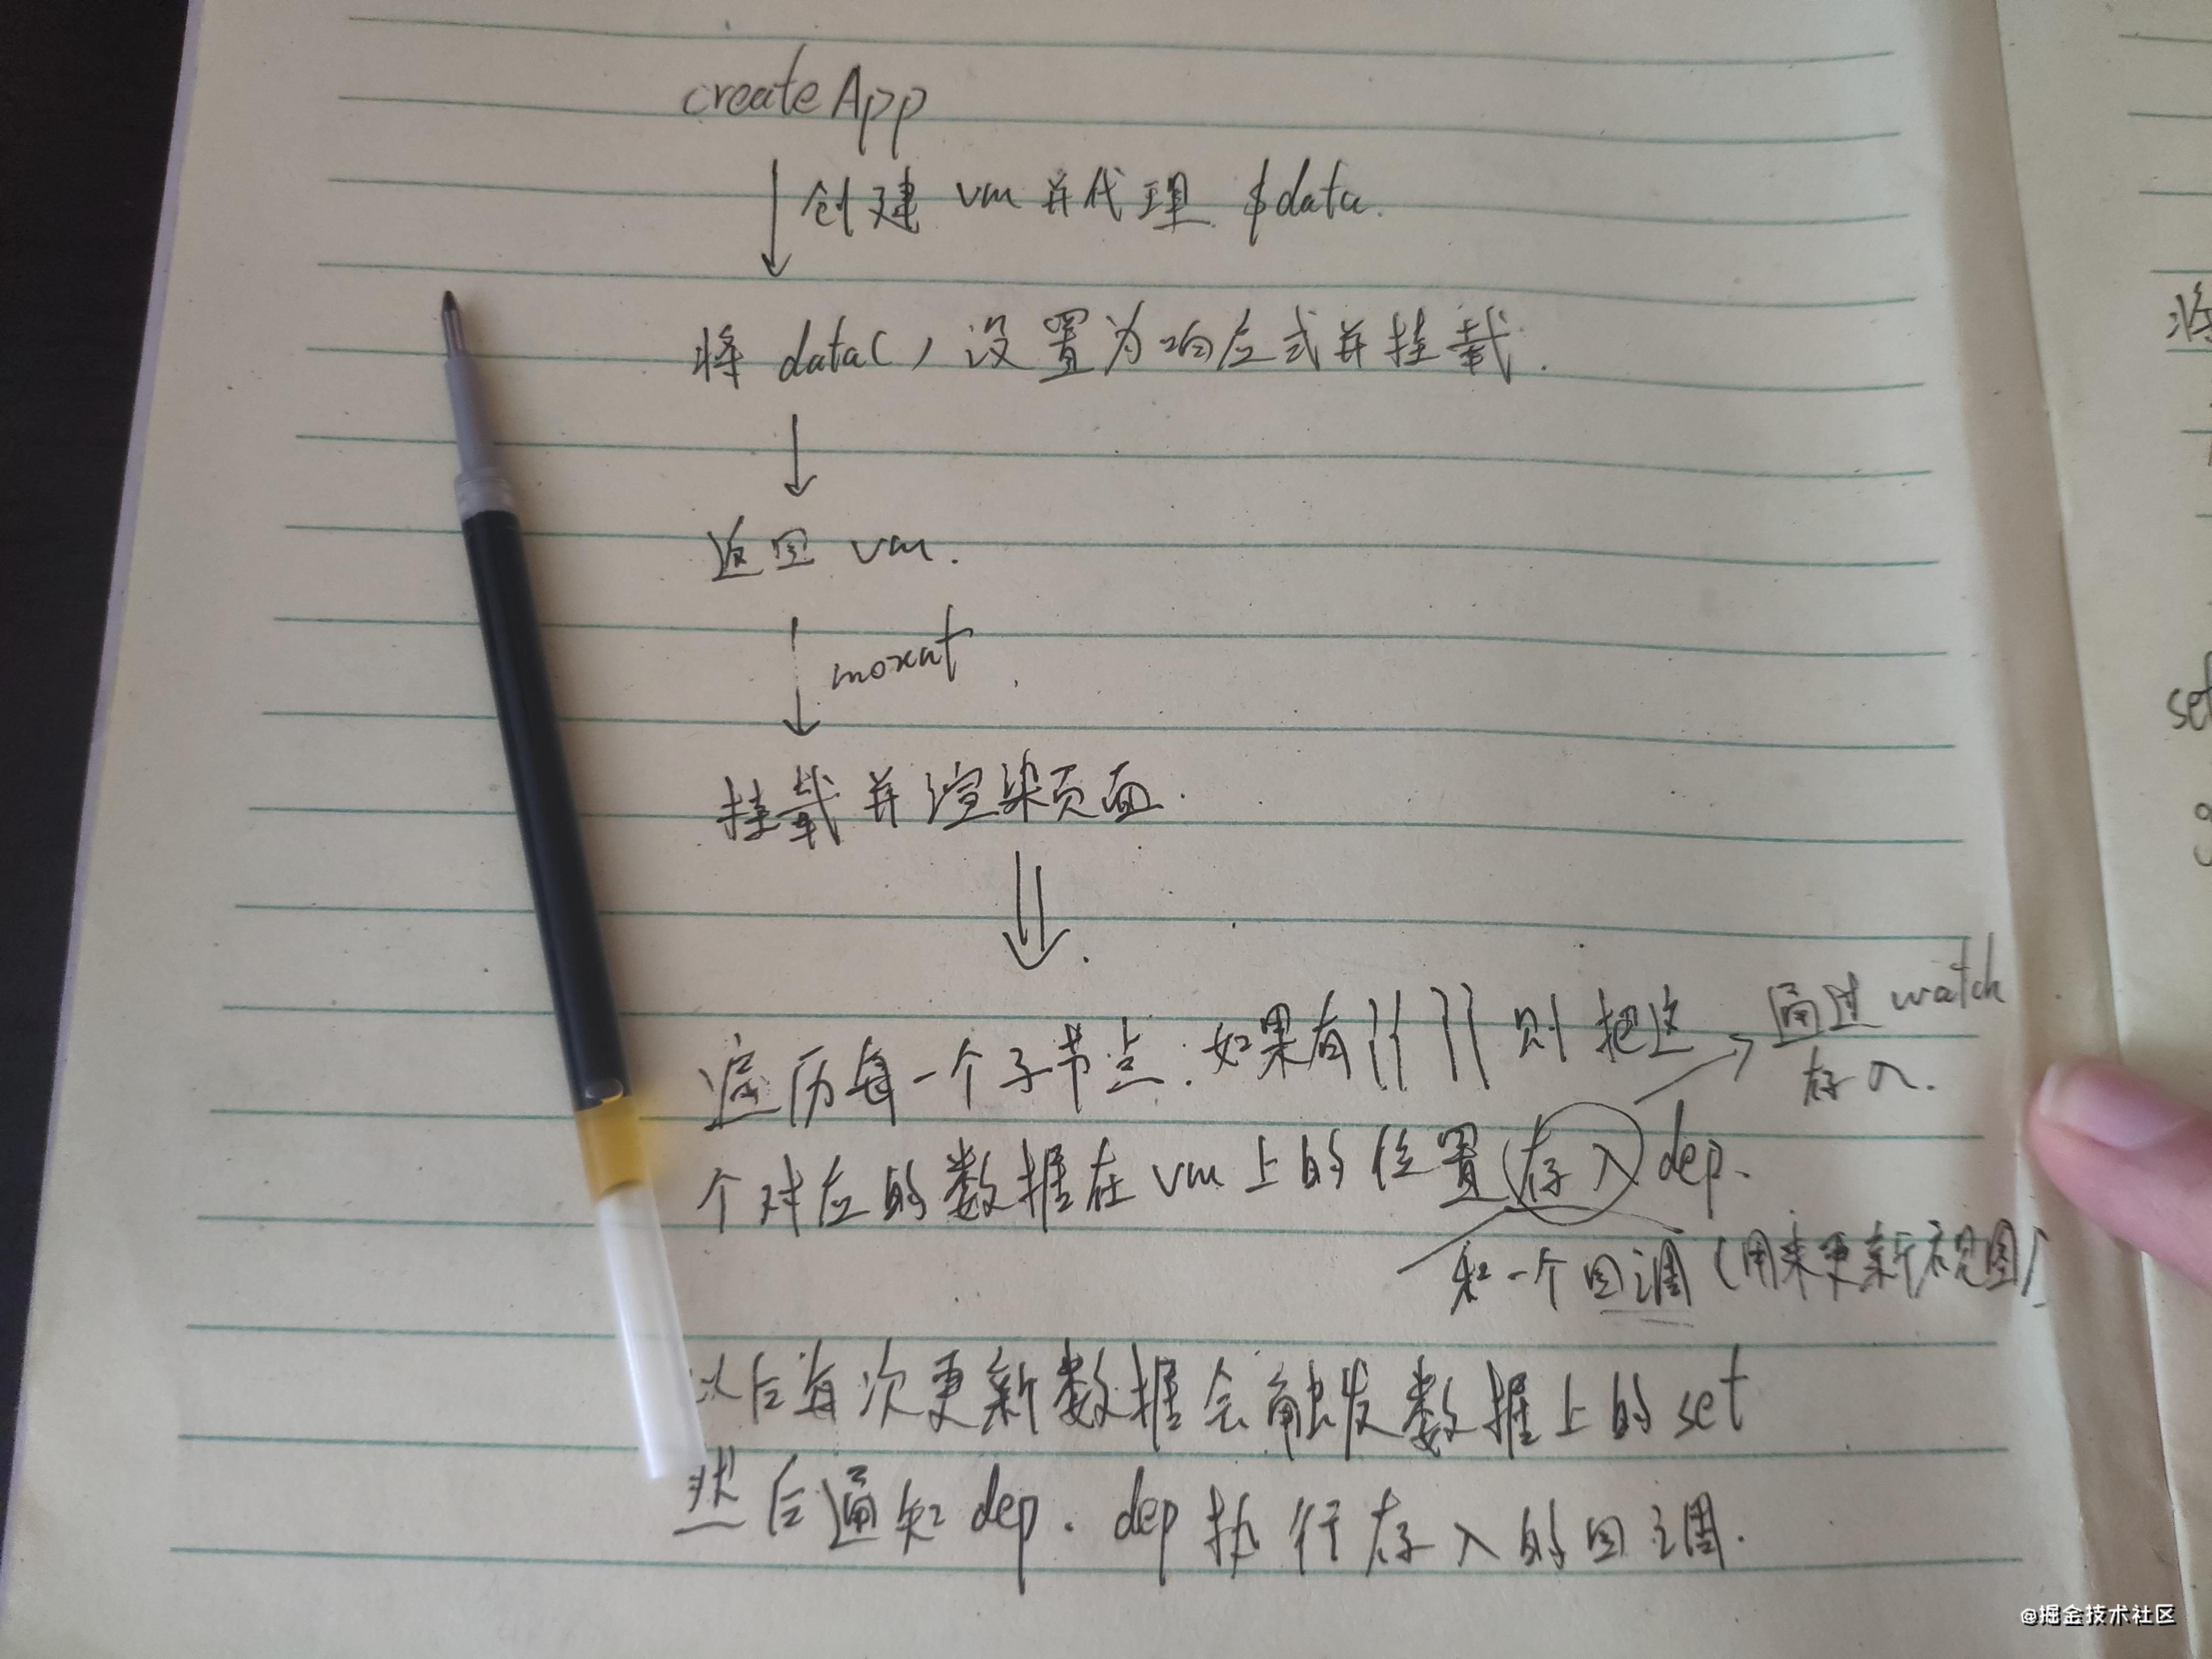 createApp
创建 vm 并代理 $data.
将 data() 设置为响应式并挂载.
返回 vm.
挂载并渲染页面.
遍历每一个子节点.如果有{{ }} 则把这
通过 watch
存入.
个对应的数据在 vm 上的位置存入 dep.
和一个回调(用来更新视图)
以后每次更新数据会触发数据上的 set
然后通知 dep. dep 执行存入的回调.
将
set
@掘金技术社区